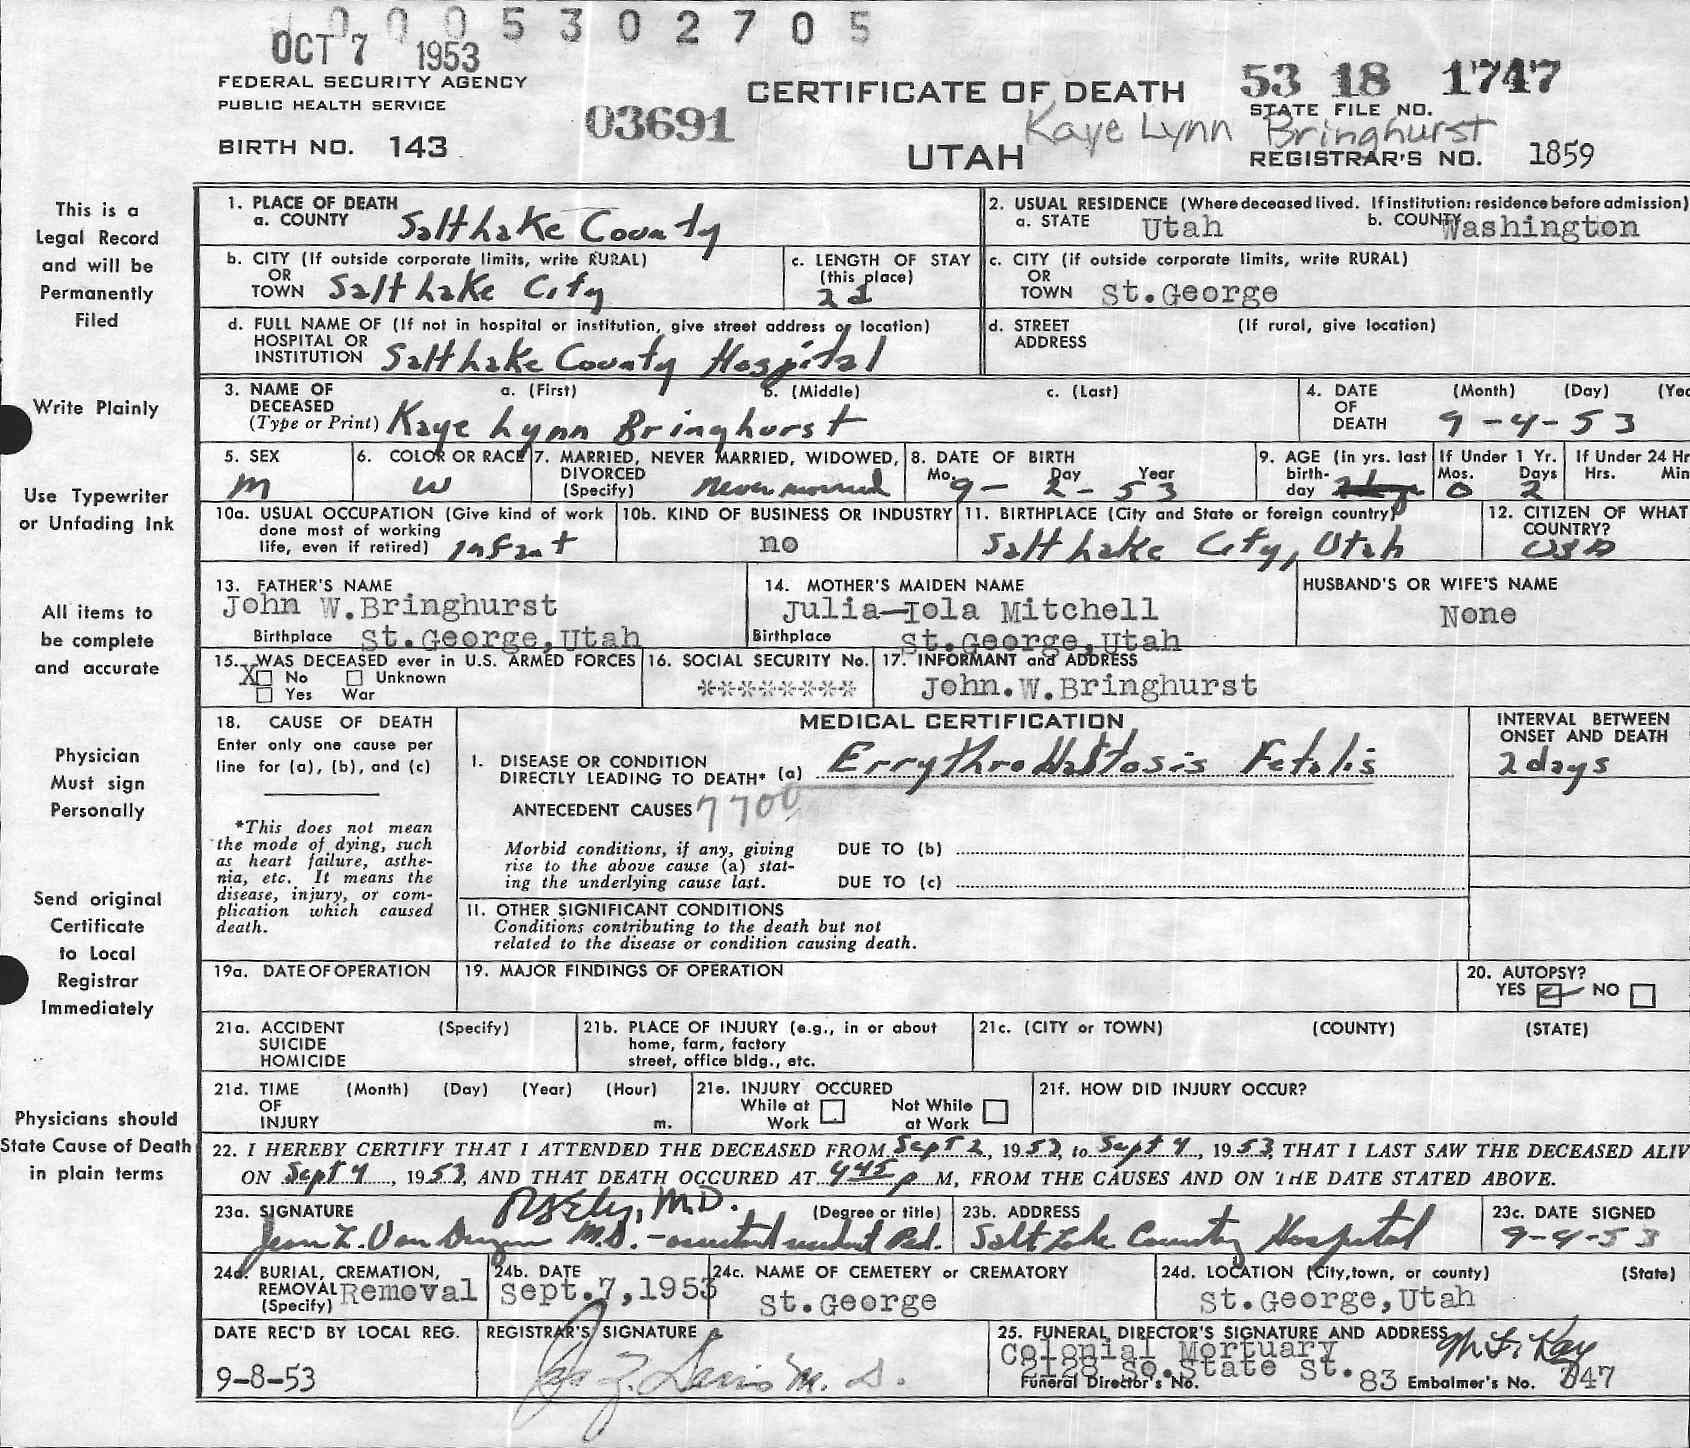 0005302705
OCT 7 1953
FEDERAL SECURITY AGENCY
PUBLIC HEALTH SERVICE
BIRTH NO. 143
03691
CERTIFICATE OF DEATH
UTAH
53 18 1747
STATE FILE NO.
Kaye Lynn Bringhurst
REGISTRAR'S NO. 1859
This is a
Legal Record
and will be
Permanently
Filed
Write Plainly
Use Typewriter
or Unfading Ink
All items to
be complete
and accurate
Physician
Must sign
Personally
Send original
Certificate
to Local
Registrar
Immediately
Physicians should
State Cause of Death
in plain terms
1. PLACE OF DEATH
a. COUNTY Salt Lake County
2. USUAL RESIDENCE (Where deceased lived. If institution: residence before admission)
a. STATE Utah b. COUNTY Washington
b. CITY (If outside corporate limits, write RURAL)
OR
TOWN Salt Lake City
c. LENGTH OF STAY
(this place)
2d
c. CITY (if outside corporate limits, write RURAL)
OR
TOWN St.George
d. FULL NAME OF (If not in hospital or institution, give street address or location)
HOSPITAL OR
INSTITUTION Salt Lake County Hospital
d. STREET (If rural, give location)
ADDRESS
3. NAME OF a. (First) b. (Middle) c. (Last)
DECEASED
(Type or Print) Kaye Lynn Bringhurst
4. DATE (Month) (Day) (Yea
OF
DEATH 9-4-53
5. SEX
M
6. COLOR OR RACE
W
7. MARRIED, NEVER MARRIED, WIDOWED,
DIVORCED
(Specify) Never married
8. DATE OF BIRTH
Mo. Day Year
9-2-53
9. AGE (In yrs. last
birth-
day
If Under 1 Yr.
Mos. Days
0 2
If Under 24 Hr
Hrs. Min
10a. USUAL OCCUPATION (Give kind of work
done most of working
life, even if retired) Infant
10b. KIND OF BUSINESS OR INDUSTRY
no
11. BIRTHPLACE (City and State or foreign country)
Salt Lake City, Utah
12. CITIZEN OF WHAT
COUNTRY?
USA
13. FATHER'S NAME
John W.Bringhurst
Birthplace St.George,Utah
14. MOTHER'S MAIDEN NAME
Julia-Iola Mitchell
Birthplace St.George,Utah
HUSBAND'S OR WIFE'S NAME
None
15. WAS DECEASED ever in U.S. ARMED FORCES
X No Unknown
Yes War
16. SOCIAL SECURITY No.
********
17. INFORMANT and ADDRESS
John.W.Bringhurst
18. CAUSE OF DEATH
Enter only one cause per
line for (a), (b), and (c)
*This does not mean
the mode of dying, such
as heart failure, asthe-
nia, etc. It means the
disease, injury, or com-
plication which caused
death.
MEDICAL CERTIFICATION
I. DISEASE OR CONDITION
DIRECTLY LEADING TO DEATH* (a) Errythroblastosis Fetalis
ANTECEDENT CAUSES 7700
Morbid conditions, if any, giving
rise to the above cause (a) stat-
ing the underlying cause last.
DUE TO (b)
DUE TO (c)
11. OTHER SIGNIFICANT CONDITIONS
Conditions contributing to the death but not
related to the disease or condition causing death.
INTERVAL BETWEEN
ONSET AND DEATH
2 days
19a. DATE OF OPERATION
19. MAJOR FINDINGS OF OPERATION
20. AUTOPSY?
YES NO
21a. ACCIDENT (Specify)
SUICIDE
HOMICIDE
21b. PLACE OF INJURY (e.g., in or about
home, farm, factory
street, office bldg., etc.
21c. (CITY or TOWN) (COUNTY) (STATE)
21d. TIME (Month) (Day) (Year) (Hour)
OF
INJURY m.
21e. INJURY OCCURED
While at Work Not While at Work
21f. HOW DID INJURY OCCUR?
22. I HEREBY CERTIFY THAT I ATTENDED THE DECEASED FROM Sept 2, 1953, to Sept 4, 1953, THAT I LAST SAW THE DECEASED ALIV
ON Sept 4, 1953, AND THAT DEATH OCCURED AT 445 p M, FROM THE CAUSES AND ON THE DATE STATED ABOVE.
23a. SIGNATURE (Degree or title)
M.D.
Jean L. Van Duzen M.D. - assistant resident Ped.
23b. ADDRESS
Salt Lake County Hospital
23c. DATE SIGNED
9-4-53
24a. BURIAL, CREMATION,
REMOVAL
(Specify) Removal
24b. DATE
Sept.7,1953
24c. NAME OF CEMETERY or CREMATORY
St.George
24d. LOCATION (City,town, or county) (State)
St.George,Utah
DATE REC'D BY LOCAL REG.
9-8-53
REGISTRAR'S SIGNATURE
M. D.
25. FUNERAL DIRECTOR'S SIGNATURE AND ADDRESS
Colonial Mortuary
2128 So.State St.
Funeral Director's No. 83 Embalmer's No. 347